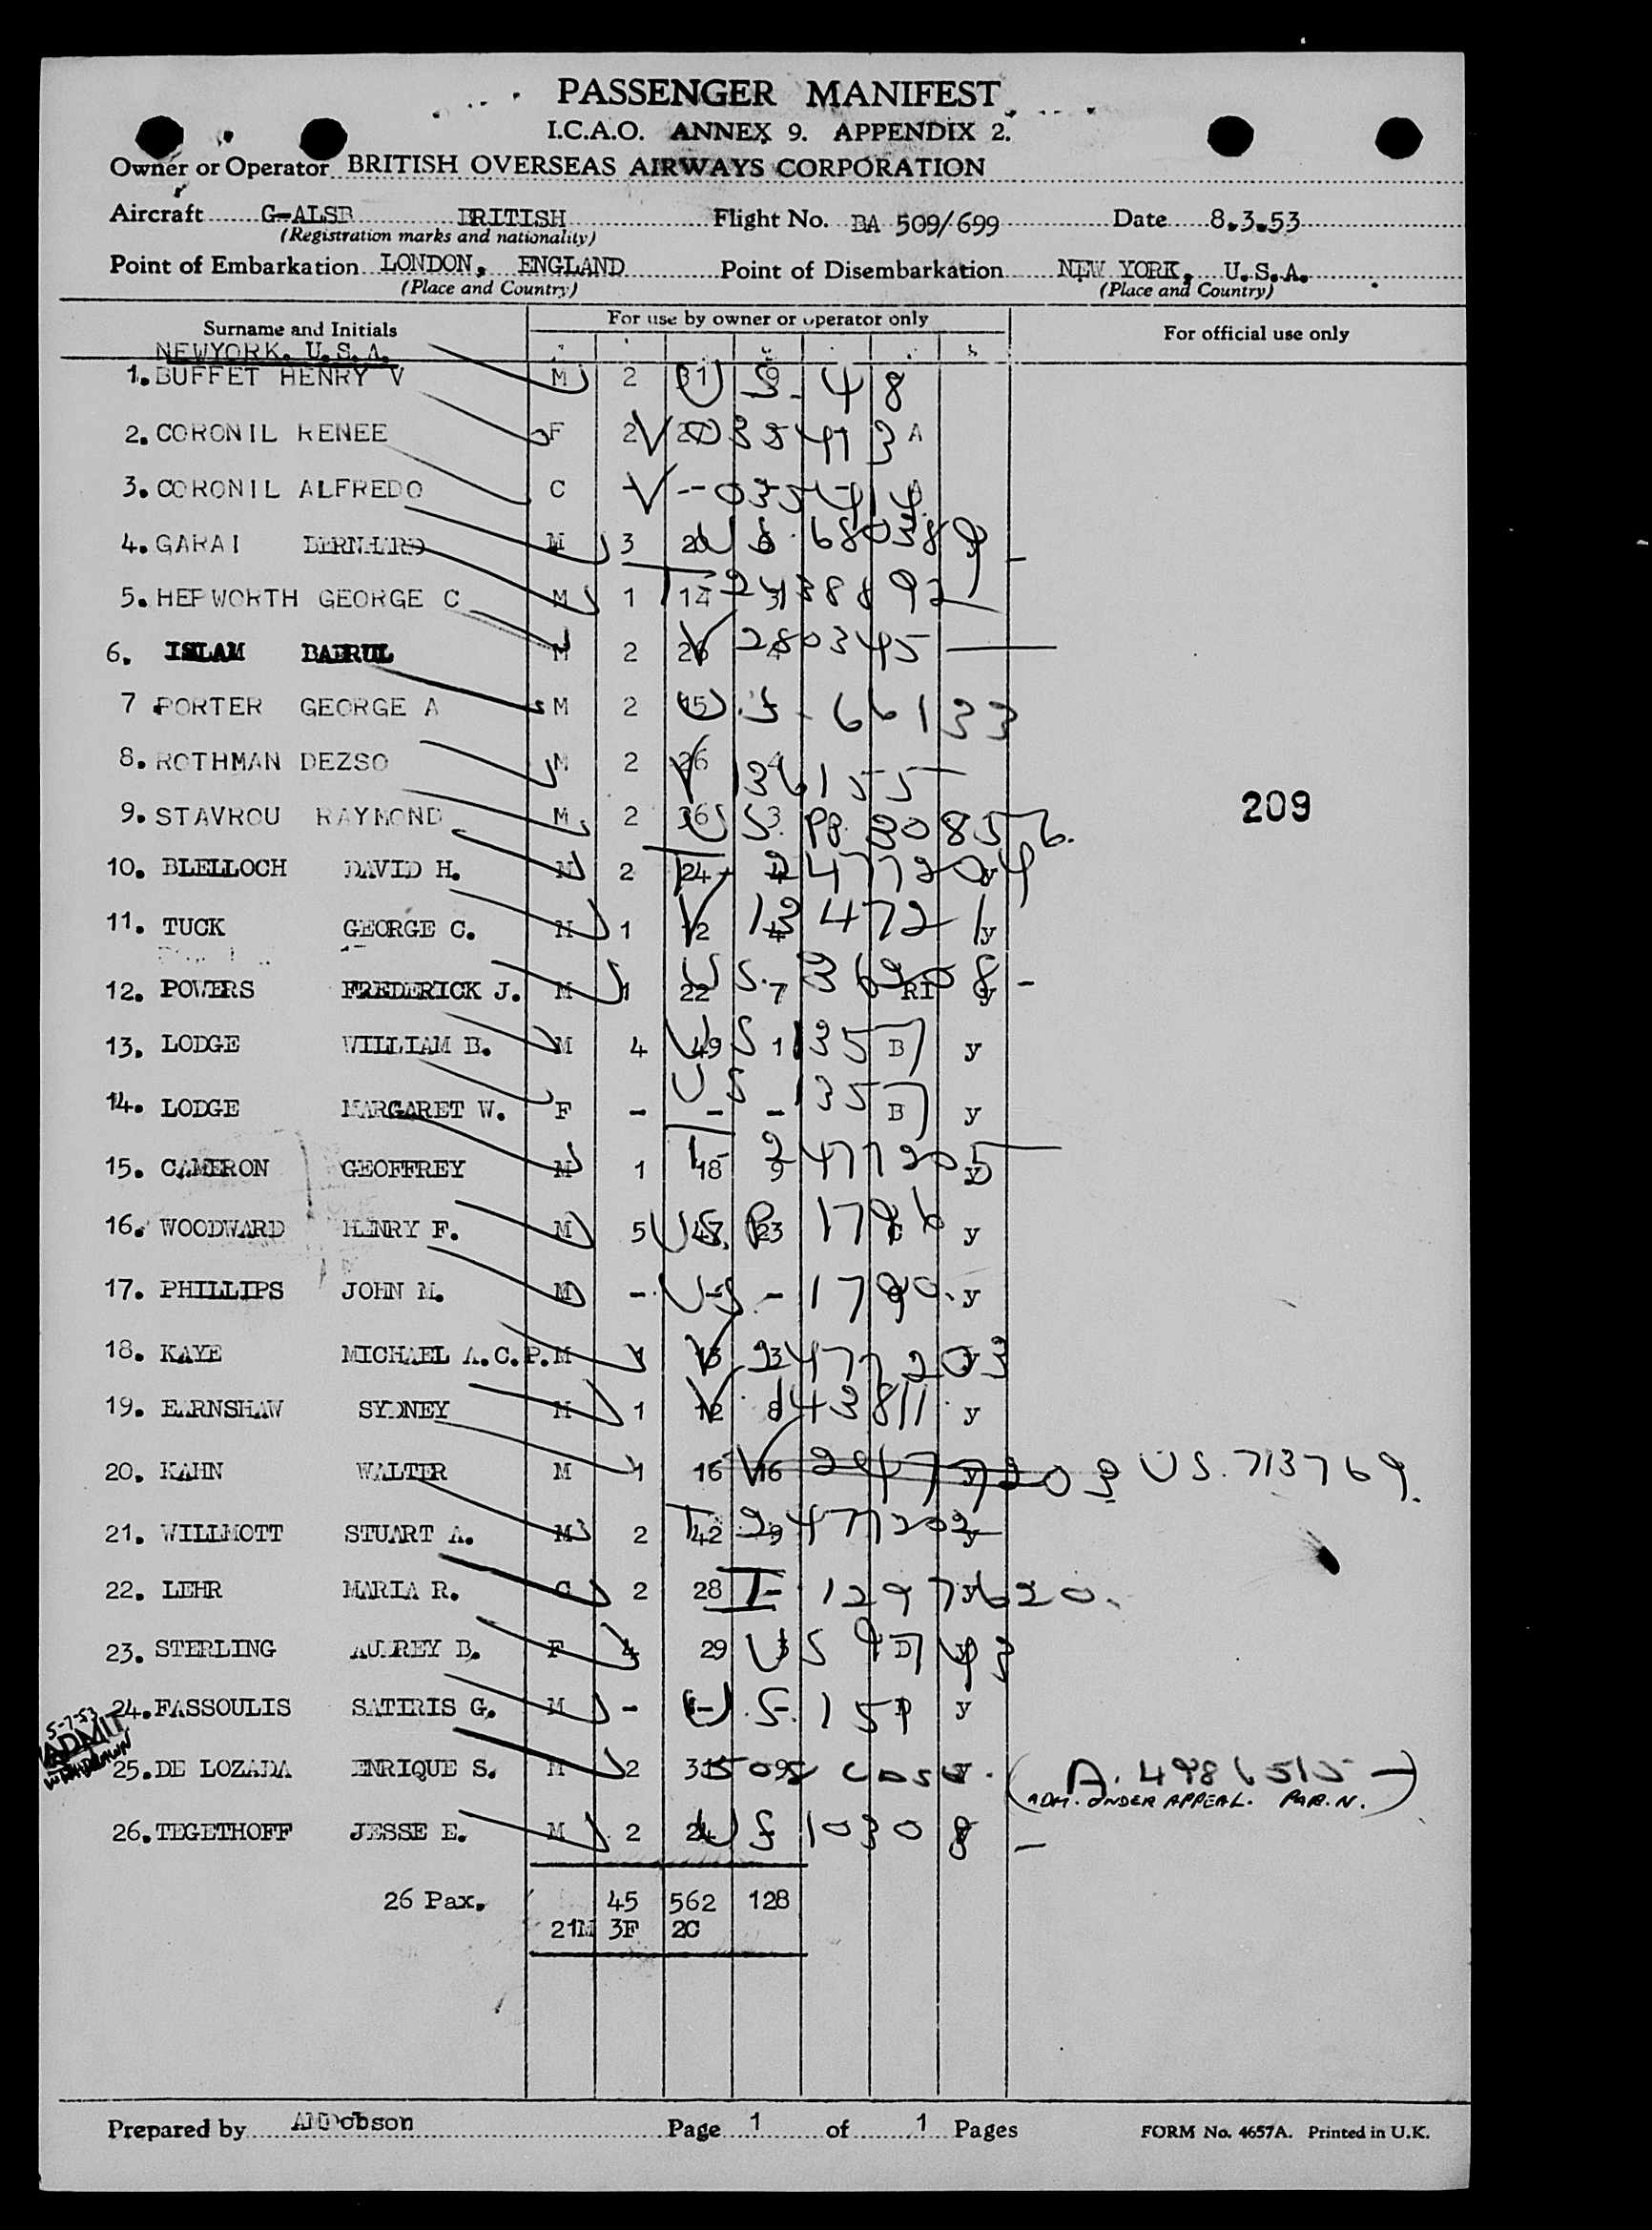 PASSENGER MANIFEST
I.C.A.O. ANNEX 9. APPENDIX 2.
Owner or Operator BRITISH OVERSEAS AIRWAYS CORPORATION
Aircraft G-ALSB BRITISH Flight No. BA 509/699 Date 8.3.53
(Registration marks and nationality)
Point of Embarkation LONDON, ENGLAND Point of Disembarkation NEW YORK, U.S.A.
(Place and Country) (Place and Country)
Surname and Initials For use by owner or operator only For official use only
NEWYORK. U.S.A.
1. BUFFET HENRY V M 2 31 9 U S. 48
2. CORONIL RENEE F 2 V 0354913 A
3. CORONIL ALFREDO C - V -- 0354914
4. GARAI BERNHARD M 3 20 6 680389
5. HEPWORTH GEORGE C M 1 14 T-2438892
6. ISLAM BADRUL M 2 26 4 V 280345
7 PORTER GEORGE A M 2 15 U.S. 66133
8. ROTHMAN DEZSO M 2 26 4 V 136155
9. STAVROU RAYMOND M 2 36 3 U S. 308556.
209
10. BLELLOCH DAVID H. M 2 24 T 2477204 y
11. TUCK GEORGE C. M 1 12 4 V 134721 y
12. POWERS FREDERICK J. M 1 22 7 US. RI y
13. LODGE WILLIAM B. M 4 49 1 US 1357 B y
14. LODGE MARGARET W. F - - - US 1357 B y
15. CAMERON GEOFFREY M 1 18 9 T 2477205 y
16. WOODWARD HENRY F. M 5 47 23 US. P 1786 C y
17. PHILLIPS JOHN M. M - - - US. 1790. y
18. KAYE MICHAEL A.C.P. M 1 13 3 V 2477203 y
19. EARNSHAW SYDNEY M 1 12 8 V 143811 y
20. KAHN WALTER M 1 16 16 V 2477203 y US. 713769.
21. WILLMOTT STUART A. M 2 42 9 T 2477202 y
22. LEHR MARIA R. C 2 28 - I 1297620.
23. STERLING AUDREY B. F 4 29 3 US 97 D y 43
24. FASSOULIS SATIRIS G. M - - - U.S. 159 y
5-7-53
ADMIT
WITHDRAWN
25. DE LOZADA ENRIQUE S. M 2 y (A. 4986515-)
ADM. UNDER APPEAL. PAR. N.
26. TEGETHOFF JESSE E. M 2 24 US 10308 -
26 Pax. 45 562 128
21M 3F 2C
Prepared by Dobson Page 1 of 1 Pages FORM No. 4657A. Printed in U.K.